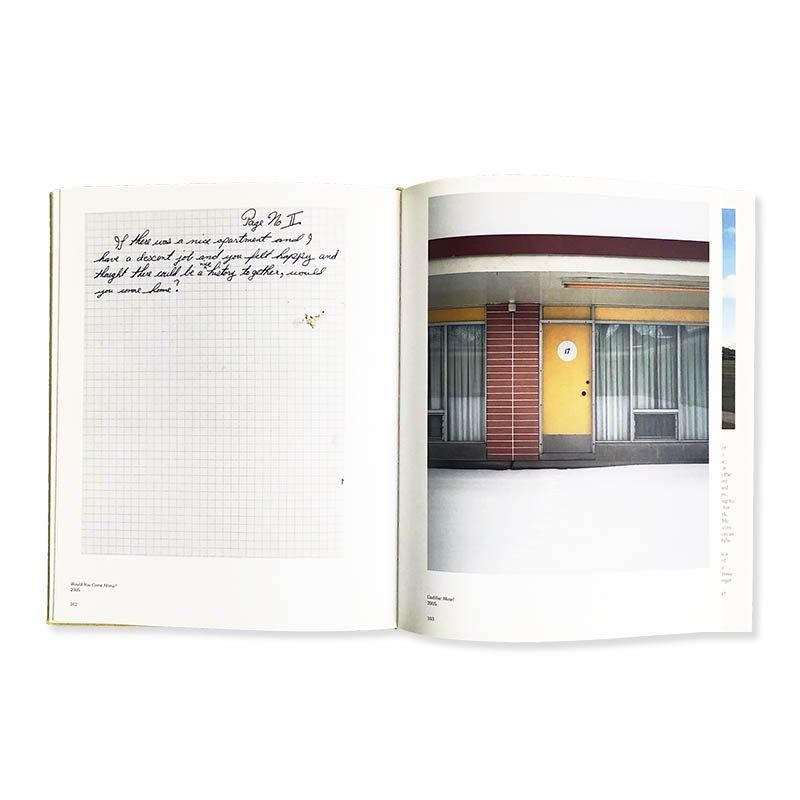 Page No II
If there was a nice apartment and I
have a descent job and you felt happy and
thought there could be a nice history together, would
you come home?
Would You Come Home?
2005
162
17
Cadillac Motel
2005
163